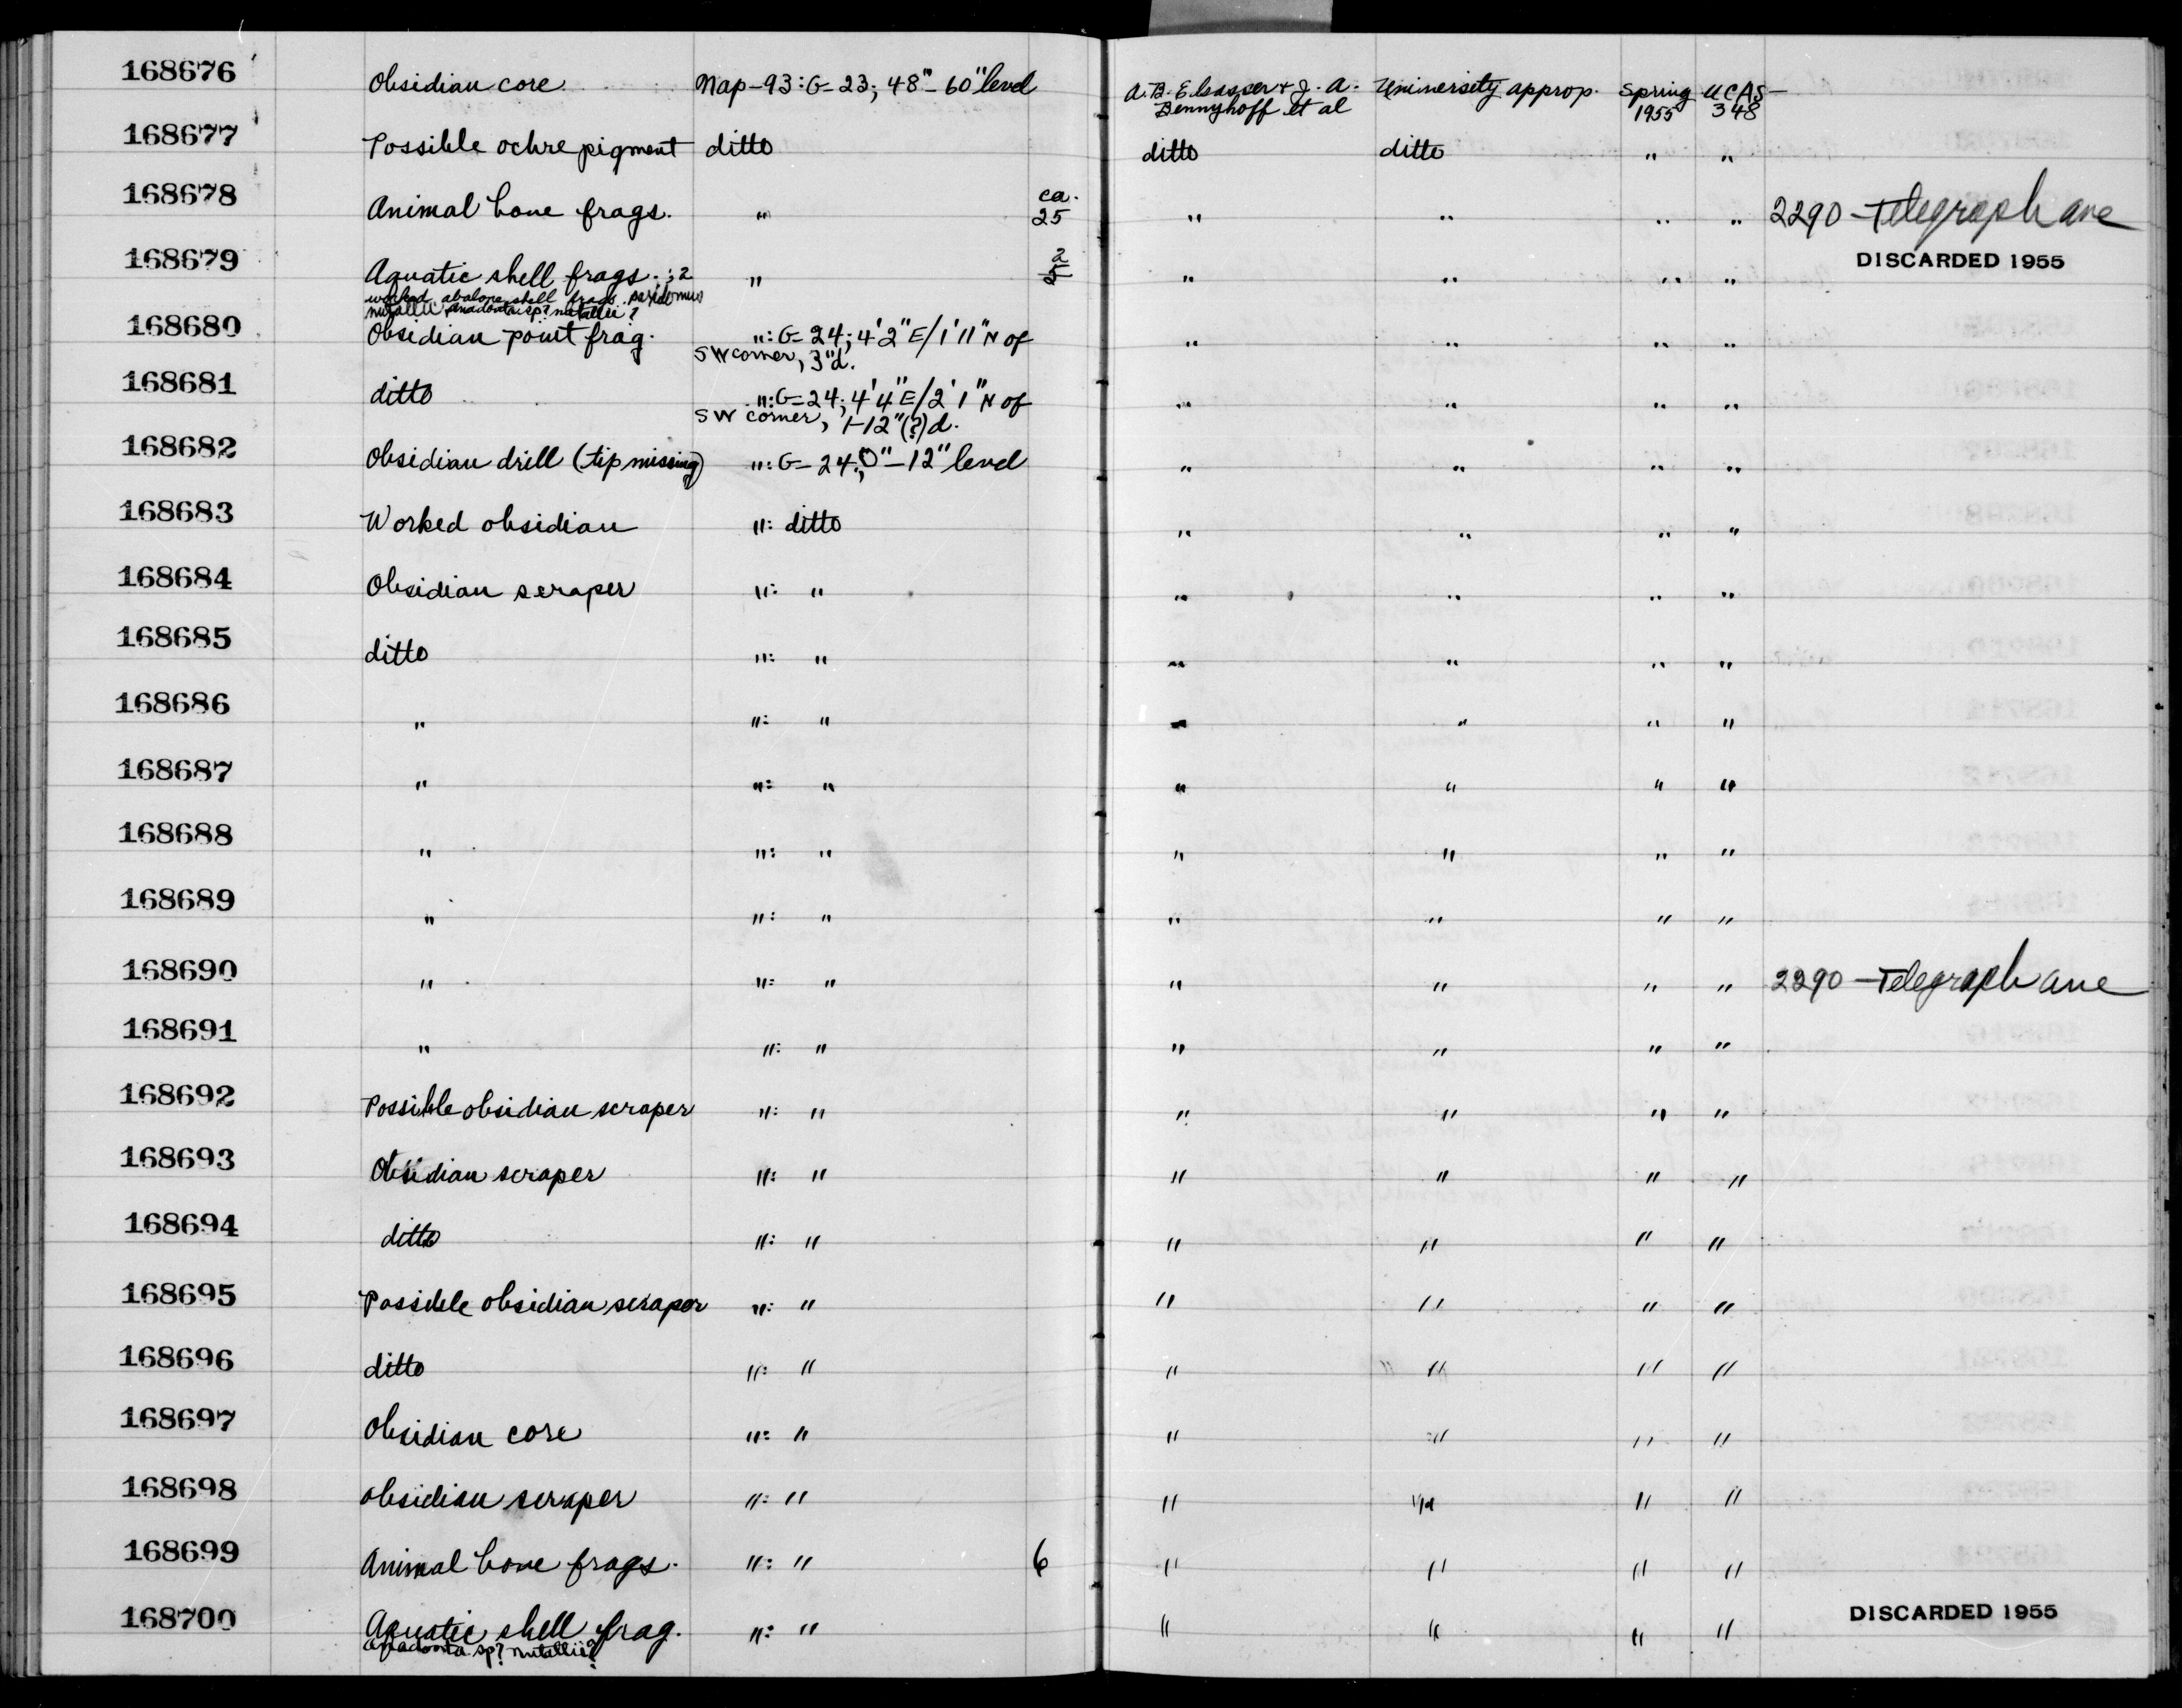 168676 Obsidian core Nap-93: G-23; 48"-60" level A. B. Elsasser & J. A. University approp. Spring UCAS-
Bennyhoff et al 1955 348
168677 Possible ochre pigment ditto ditto ditto " "
168678 Animal bone frags. " ca. 25 " " " " 2290 - Telegraph ave
168679 Aquatic shell frags.; 2 " 2 " " " " DISCARDED 1955
worked abalone shell frags.
nutallii anadonta sp? nutallii?
168680 Obsidian point frag. ": G-24; 4'2" E/1'11" N of " " " "
SW corner, 3"d.
168681 ditto ": G-24; 4'4" E/2'1" N of " " " "
SW corner, 1-12"(?)d.
168682 Obsidian drill (tip missing) ": G-24; 0"-12" level " " " "
168683 Worked obsidian ": ditto " " " "
168684 Obsidian scraper ": " " " " "
168685 ditto ": " " " " "
168686 " ": " " " " "
168687 " ": " " " " "
168688 " ": " " " " "
168689 " ": " " " " "
168690 " ": " " " " " 2290 - Telegraph ave
168691 " ": " " " " "
168692 Possible obsidian scraper ": " " " " "
168693 Obsidian scraper ": " " " " "
168694 ditto ": " " " " "
168695 Possible obsidian scraper ": " " " " "
168696 ditto ": " " " " "
168697 Obsidian core ": " " " " "
168698 obsidian scraper ": " " " " "
168699 Animal bone frags. ": " 6 " " " "
168700 Aquatic shell frag. ": " " " " " DISCARDED 1955
anadonta sp? nutallii?